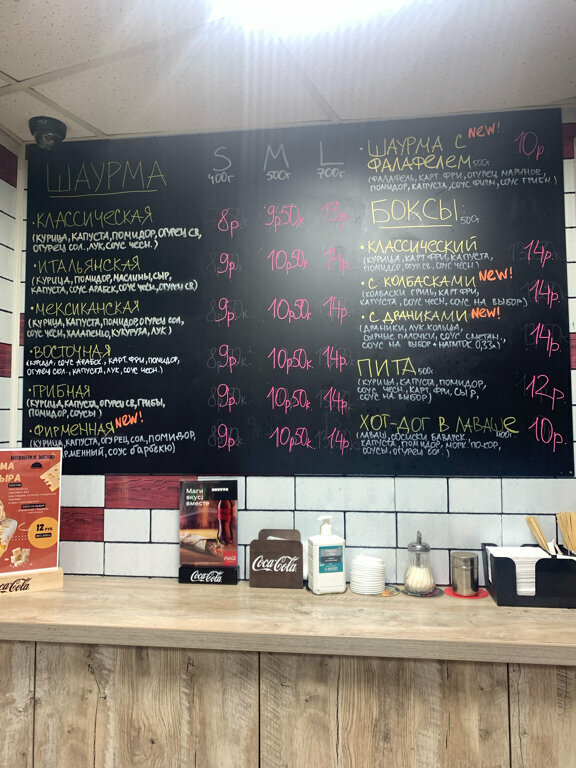 ШАУРМА
S M L
400г 500г 700г
·КЛАССИЧЕСКАЯ
(КУРИЦА, КАПУСТА, ПОМИДОР, ОГУРЕЦ СВ,
ОГУРЕЦ СОЛ, ЛУК, СОУС ЧЕСН.)
8р. 9р50к.
·ИТАЛЬЯНСКАЯ
(КУРИЦА, ПОМИДОР, МАСЛИНЫ, СЫР,
КАПУСТА, СОУС АРАБСК, СОУС ЧЕСН, ОГУРЕЦ СВ)
9р. 10р50к. 14р.
·МЕКСИКАНСКАЯ
(КУРИЦА, КАПУСТА, ПОМИДОР, ОГУРЕЦ СОЛ,
СОУС ЧЕСН, ХАЛАПЕНЬО, КУКУРУЗА, ЛУК)
9р. 10р50к. 14р.
·ВОСТОЧНАЯ
(КУРИЦА, СОУС АРАБСК., КАРТ. ФРИ, ПОМИДОР,
ОГУРЕЦ СОЛ., КАПУСТА, ЛУК, СОУС ЧЕСН.)
9р. 10р50к. 14р.
·ГРИБНАЯ
(КУРИЦА, КАПУСТА, ОГУРЕЦ СВ, ГРИБЫ,
ПОМИДОР, СОУСЫ)
9р. 10р50к. 14р.
·ФИРМЕННАЯ NEW!
(КУРИЦА, КАПУСТА, ОГУРЕЦ СОЛ, ПОМИДОР,
СОУС БАРБЕКЮ)
9р. 10р50к. 14р.
·ШАУРМА С NEW!
ФАЛАФЕЛЕМ 500г
10р.
(ФАЛАФЕЛЬ, КАРТ. ФРИ, ОГУРЕЦ МАРИНОВ,
ПОМИДОР, КАПУСТА, СОУС ФИРМ, СОУС ГРИБН.)
БОКСЫ 500г.
·КЛАССИЧЕСКИЙ
(КУРИЦА, КАРТ ФРИ, КАПУСТА,
ПОМИДОР, ОГУР. СВ, СОУС ЧЕСН.)
14р.
·С КОЛБАСКАМИ NEW!
(КОЛБАСКИ ГРИЛЬ, КАРТ. ФРИ,
КАПУСТА, СОУС ЧЕСН, СОУС НА ВЫБОР)
14р.
·С ДРАНИКАМИ NEW!
(ДРАНИКИ, ЛУК. КОЛЬЦА,
СЫРНЫЕ ПАЛОЧКИ, СОУС СМЕТАН.,
СОУС НА ВЫБОР + НАПИТОК 0,33л)
14р.
ПИТА 500г
(КУРИЦА, КАПУСТА, ПОМИДОР,
СОУС ЧЕСН. КАРТ. ФРИ, СЫР,
СОУС НА ВЫБОР)
12р.
ХОТ-ДОГ В ЛАВАШЕ
400г
(ЛАВАШ, СОСИСКИ БАВАРСК.
КАПУСТА, ПОМИДОР, МОРК. ПО-КОР,
СОУСЫ, ОГУРЕЦ СОЛ.)
10р.
НОВИНКА МЕНЮ
12 РУБ
Coca-Cola
вкуса
вместе
Coca-Cola
Coca-Cola